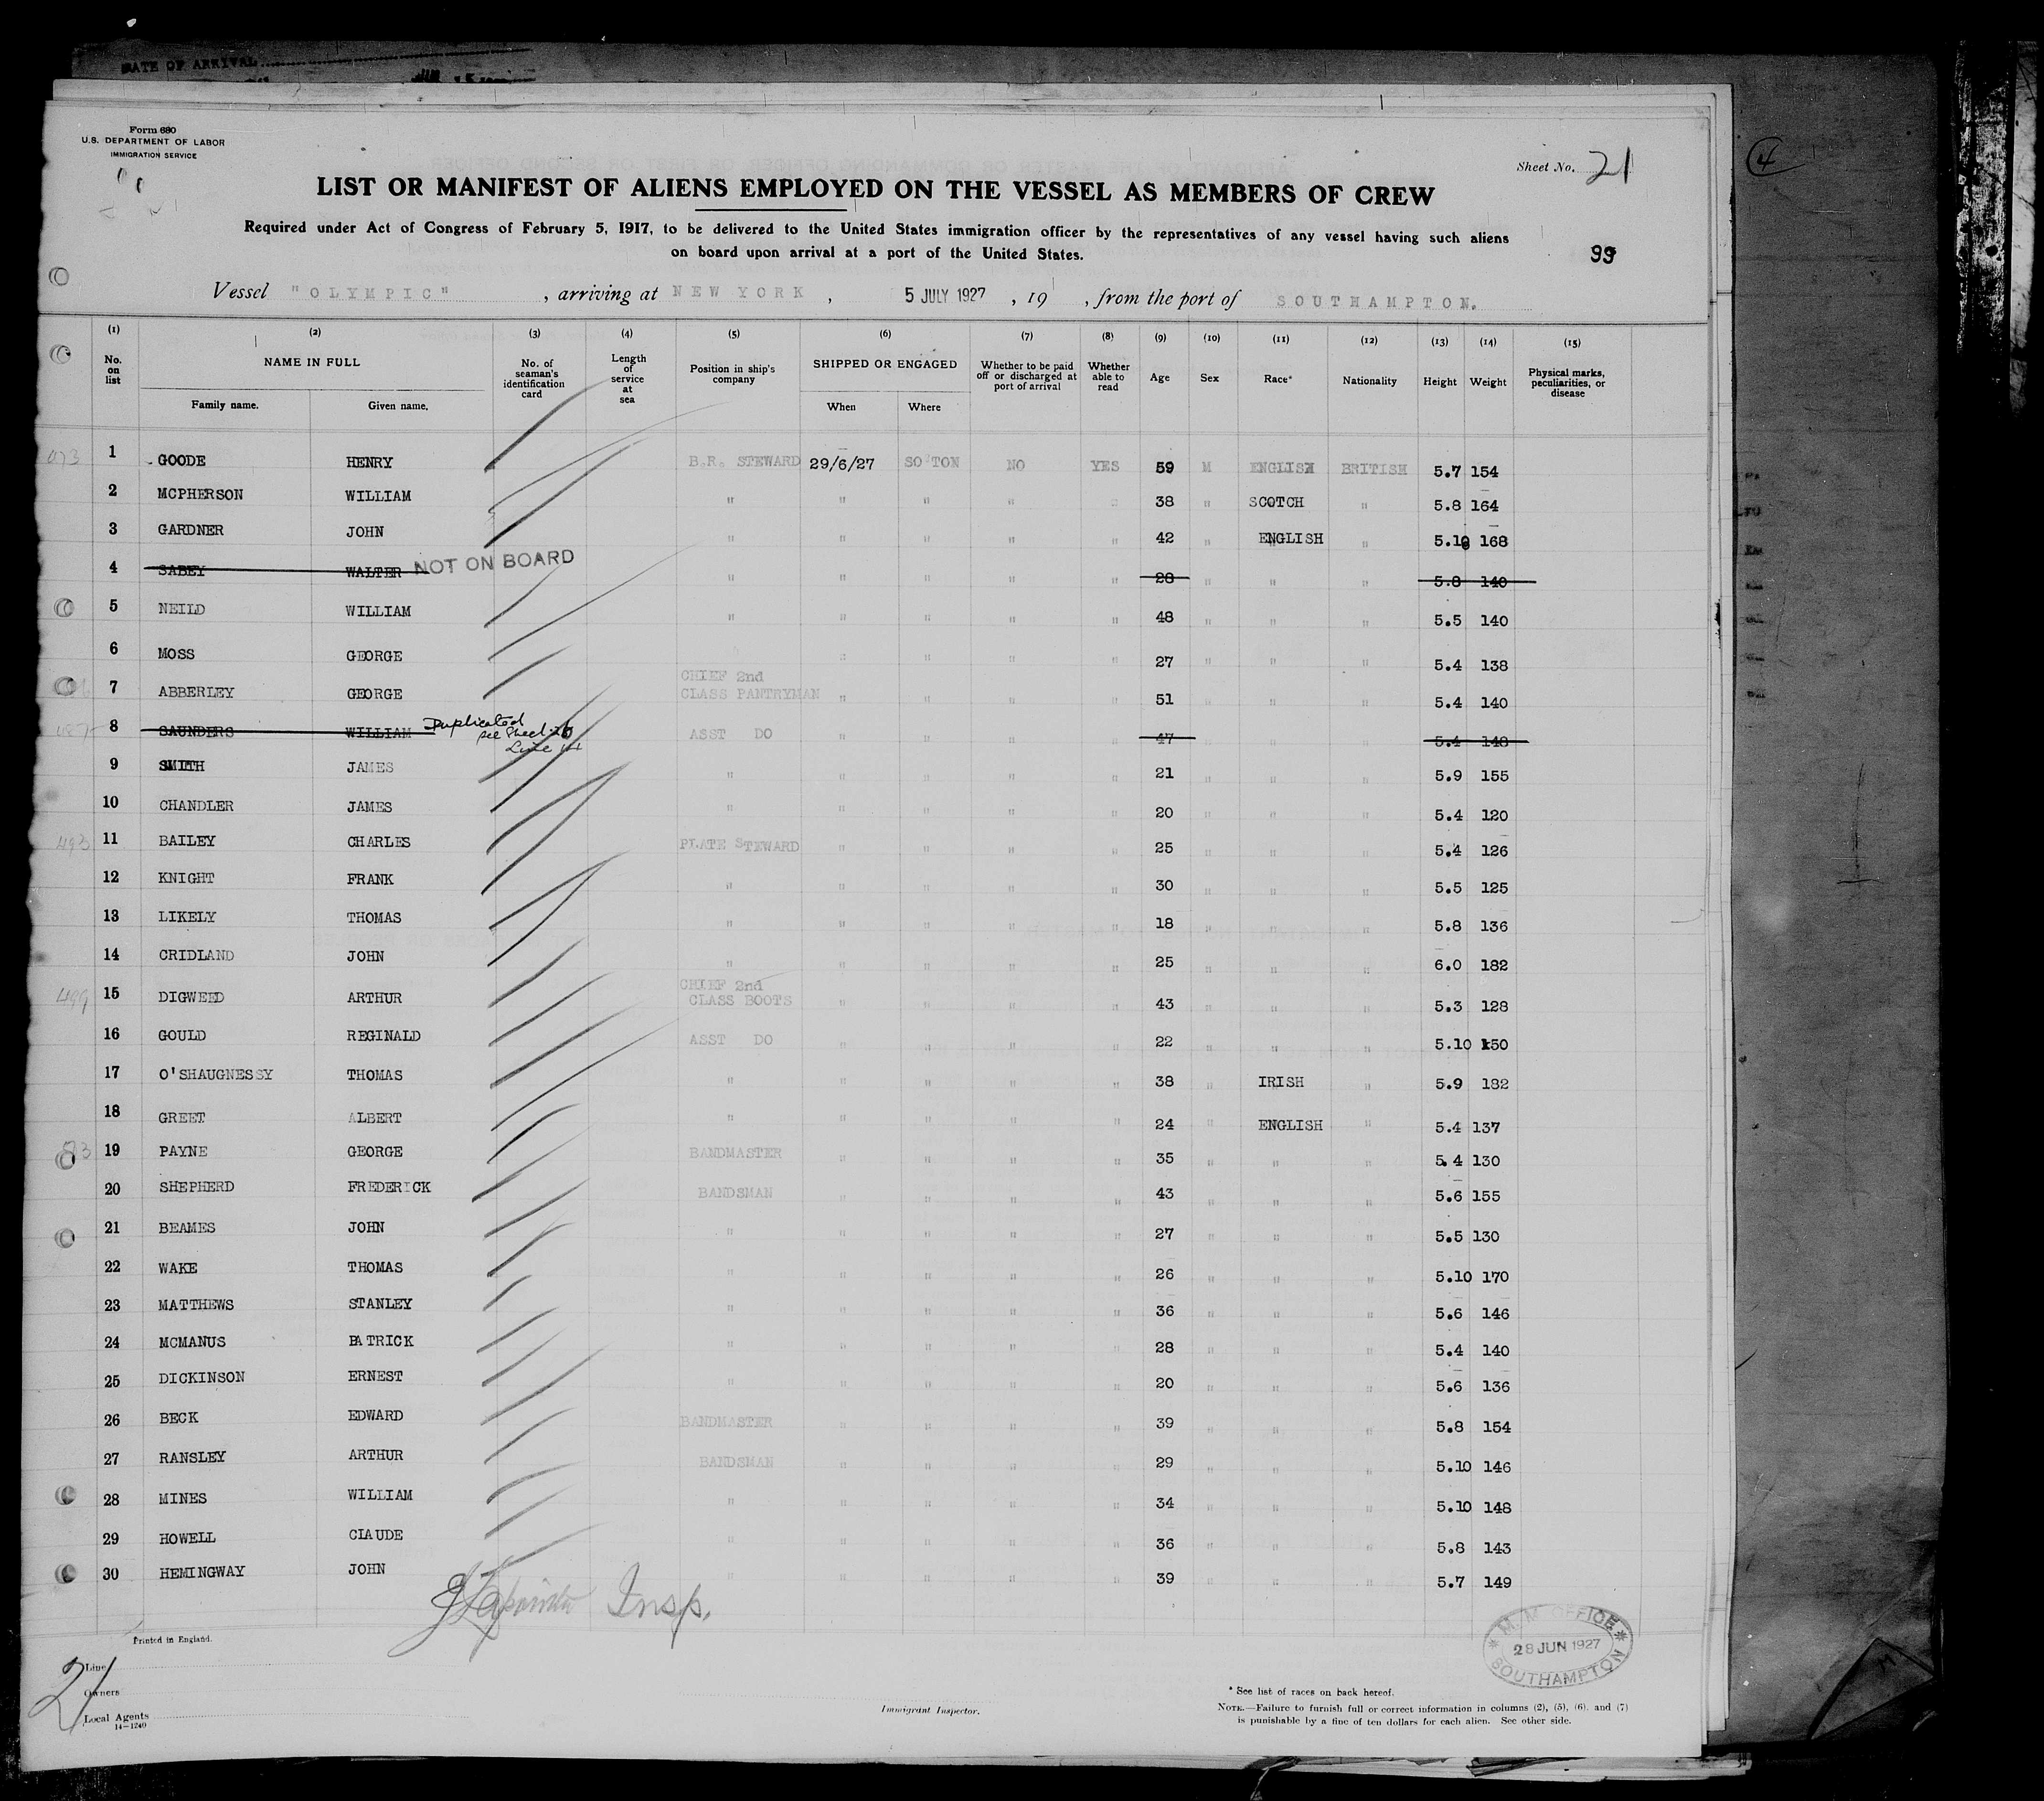 DATE OF ARRIVAL
Form 680
U.S. DEPARTMENT OF LABOR
IMMIGRATION SERVICE
Sheet No. 21
4
LIST OR MANIFEST OF ALIENS EMPLOYED ON THE VESSEL AS MEMBERS OF CREW
Required under Act of Congress of February 5, 1917, to be delivered to the United States immigration officer by the representatives of any vessel having such aliens
on board upon arrival at a port of the United States.
99
Vessel "OLYMPIC", arriving at NEW YORK, 5 JULY 1927, 19 , from the port of SOUTHAMPTON.
(1) (2) (3) (4) (5) (6) (7) (8) (9) (10) (11) (12) (13) (14) (15)
No. on list NAME IN FULL No. of seaman's identification card Length of service at sea Position in ship's company SHIPPED OR ENGAGED Whether to be paid off or discharged at port of arrival Whether able to read Age Sex Race* Nationality Height Weight Physical marks, peculiarities, or disease
Family name. Given name. When Where
1 GOODE HENRY B.R. STEWARD 29/6/27 SO'TON NO YES 59 M ENGLISH BRITISH 5.7 154
2 MCPHERSON WILLIAM " " " " " 38 " SCOTCH " 5.8 164
3 GARDNER JOHN " " " " " 42 " ENGLISH " 5.10 168
4 SABEY WALTER NOT ON BOARD " " " " " 28 " " " 5.8 140
5 NEILD WILLIAM " " " " " 48 " " " 5.5 140
6 MOSS GEORGE " " " " 27 " " " 5.4 138
7 ABBERLEY GEORGE CHIEF 2nd CLASS PANTRYMAN " " " " 51 " " " 5.4 140
8 SAUNDERS WILLIAM Duplicated see Sheet 26 Line 14 ASST DO " " " " 47 " " " 5.4 148
9 SMITH JAMES " " " " " 21 " " " 5.9 155
10 CHANDLER JAMES " " " " " 20 " " " 5.4 120
493 11 BAILEY CHARLES PLATE STEWARD " " " " 25 " " " 5.4 126
12 KNIGHT FRANK " " " " " 30 " " " 5.5 125
13 LIKELY THOMAS " " " " " 18 " " " 5.8 136
14 CRIDLAND JOHN " " " " " 25 " " " 6.0 182
499 15 DIGWEED ARTHUR CHIEF 2nd CLASS BOOTS " " " " 43 " " " 5.3 128
16 GOULD REGINALD ASST DO " " " " 22 " " " 5.10 150
17 O'SHAUGNESSY THOMAS " " " " " 38 " IRISH " 5.9 182
18 GREET ALBERT " " " " " 24 " ENGLISH " 5.4 137
19 PAYNE GEORGE BANDMASTER " " " " 35 " " " 5.4 130
20 SHEPHERD FREDERICK BANDSMAN " " " " 43 " " " 5.6 155
21 BEAMES JOHN " " " " " 27 " " " 5.5 130
22 WAKE THOMAS " " " " " 26 " " " 5.10 170
23 MATTHEWS STANLEY " " " " " 36 " " " 5.6 146
24 MCMANUS PATRICK " " " " " 28 " " " 5.4 140
25 DICKINSON ERNEST " " " " " 20 " " " 5.6 136
26 BECK EDWARD BANDMASTER " " " " 39 " " " 5.8 154
27 RANSLEY ARTHUR BANDSMAN " " " " 29 " " " 5.10 146
28 MINES WILLIAM " " " " " 34 " " " 5.10 148
29 HOWELL CLAUDE " " " " " 36 " " " 5.8 143
30 HEMINGWAY JOHN " " " " " 39 " " " 5.7 149
Insp.
Printed in England.
M.M. OFFICE 28 JUN 1927 SOUTHAMPTON
21
Line
Owners
Local Agents
14-1240
Immigrant Inspector.
* See list of races on back hereof.
NOTE.—Failure to furnish full or correct information in columns (2), (5), (6), and (7)
is punishable by a fine of ten dollars for each alien. See other side.